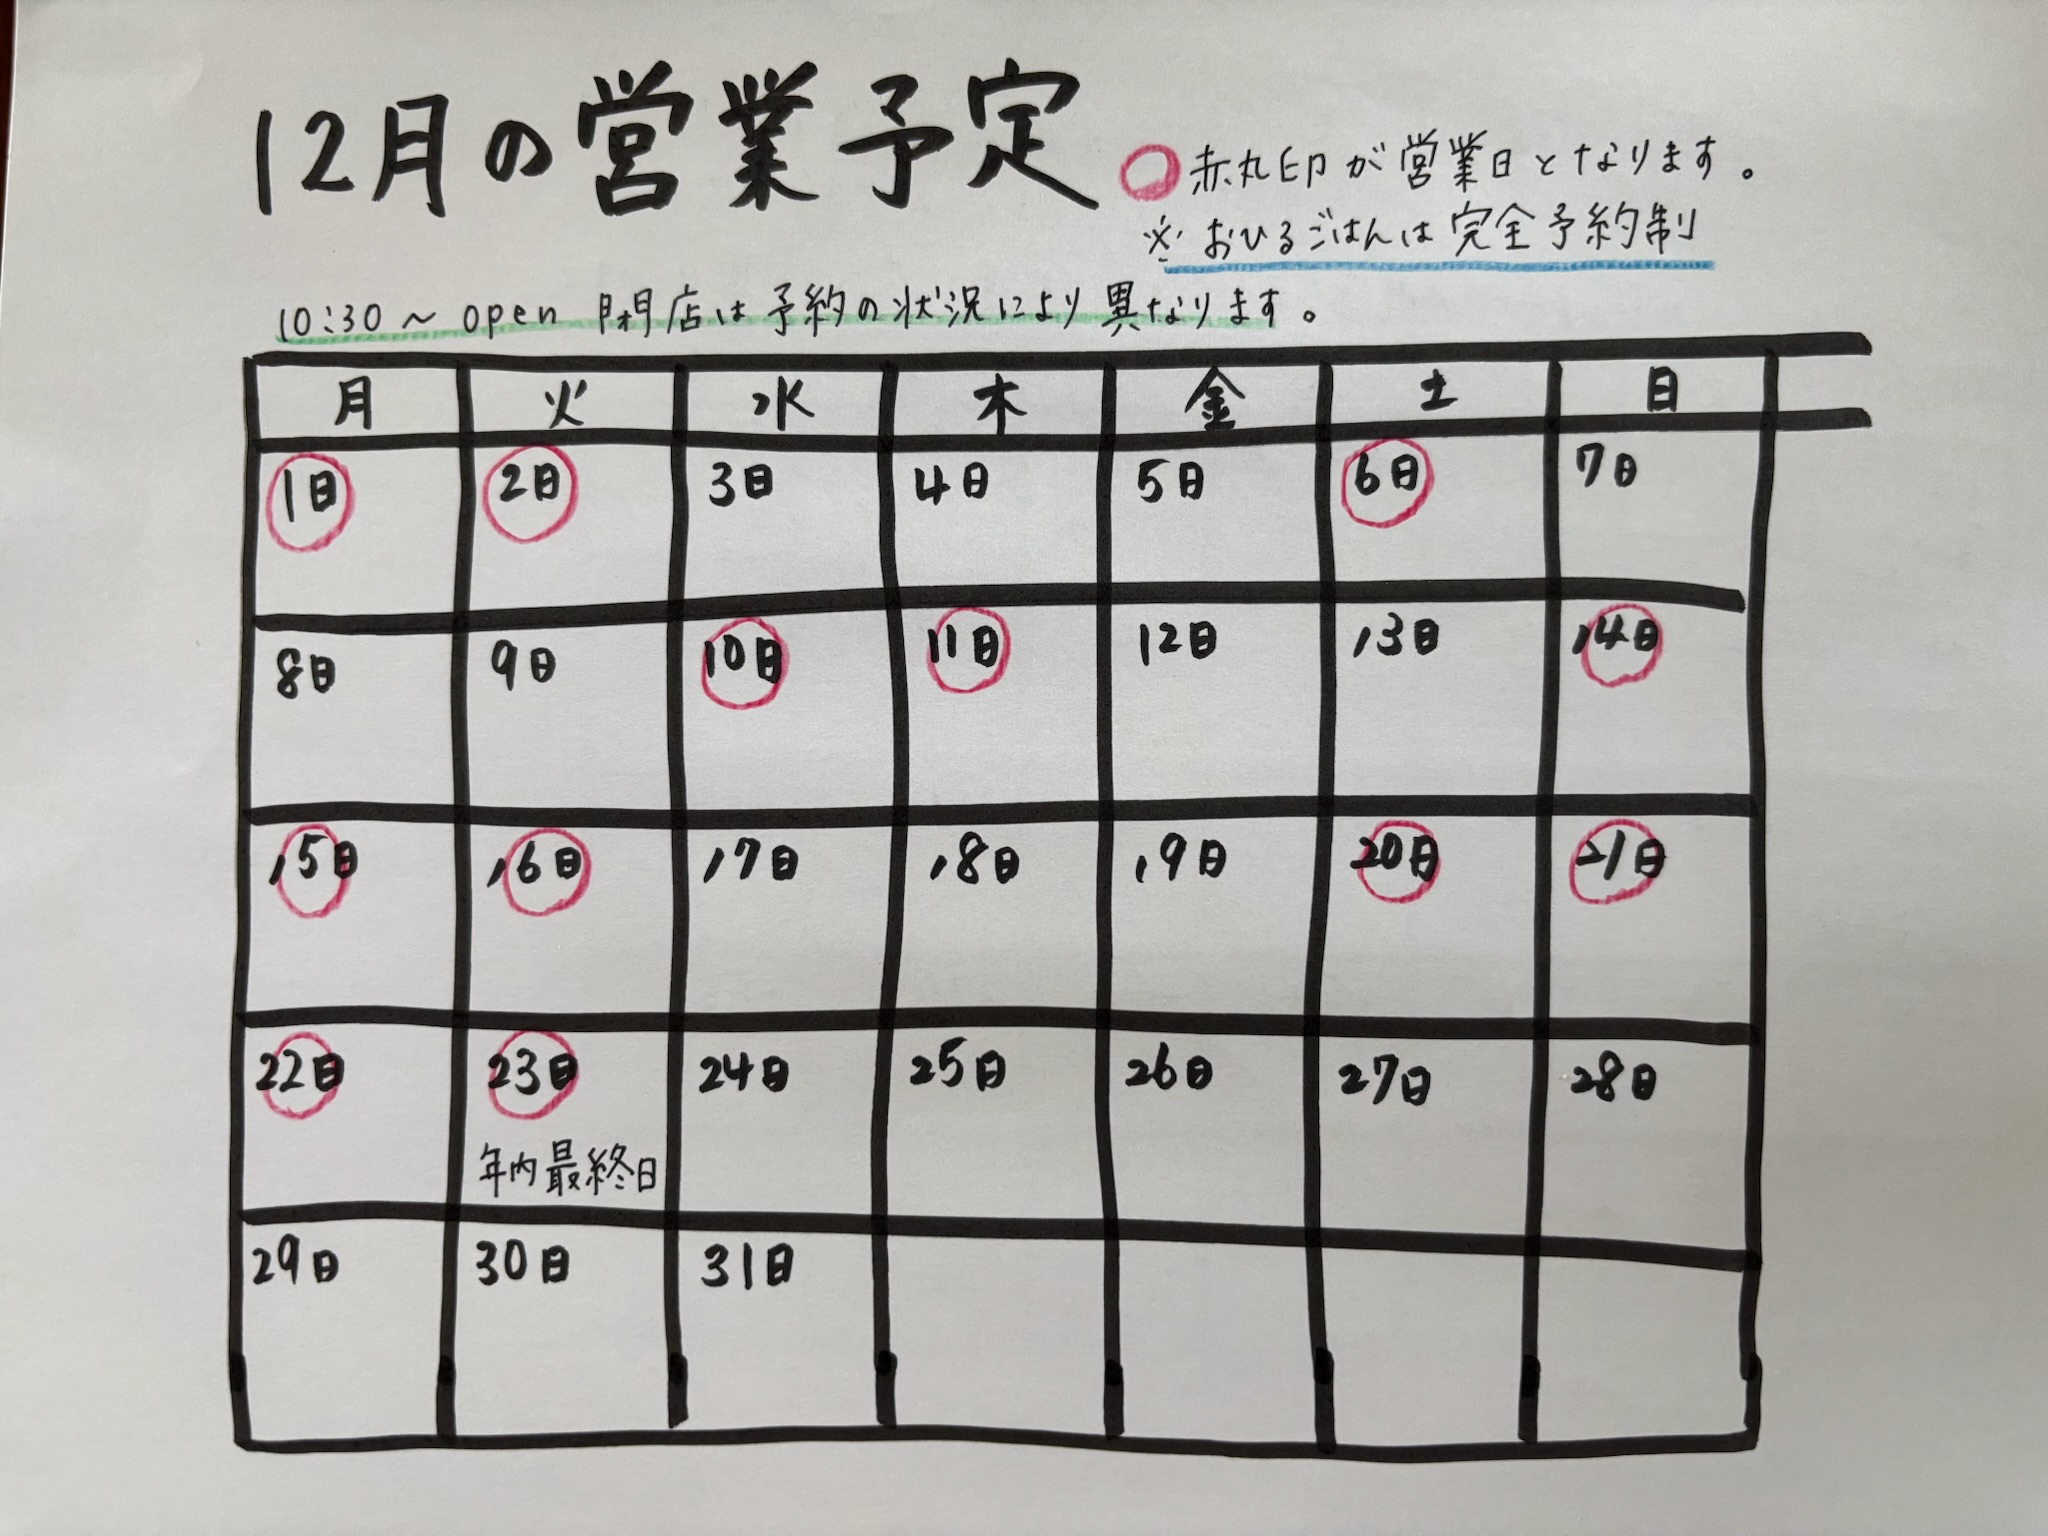 12月の営業予定
○赤丸印が営業日となります。
※おひるごはんは完全予約制
10:30～open 閉店は予約の状況により異なります。
月 火 水 木 金 土 日
1日 2日 3日 4日 5日 6日 7日
8日 9日 10日 11日 12日 13日 14日
15日 16日 17日 18日 19日 20日 21日
22日 23日 24日 25日 26日 27日 28日
年内最終日
29日 30日 31日